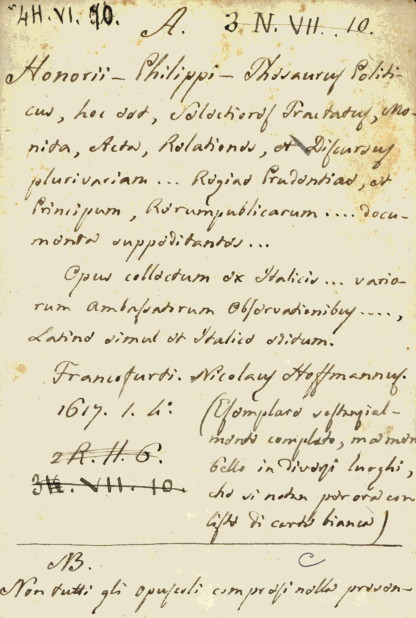 4H. VI. 90.
A. 3 N. VII. 10.
Honorii – Philippi – Thesaurus Politi-
cus, hoc est, Selectiores Tractatus, Mo-
nita, Acta, Relationes, et Discursus
plurivariam ... Regiae Prudentiae, et
Principum, Rerumpublicarum .... docu-
menta suppeditantes ...
Opus collectum ex Italicis ... vario-
rum Ambasatorum Observationibus ....,
Latine simul et Italice editum.
Francofurti. Nicolaus Hoffmannus.
1617. 1. 4º.
(Esemplare
mente completo, ma man-
bello in diversi luoghi,
che si notan per ora con
liste di carta bianca)
2 R. H. 6.
3 VII. 10.
NB.
C
Non tutti gli opuscoli compresi nella presen-